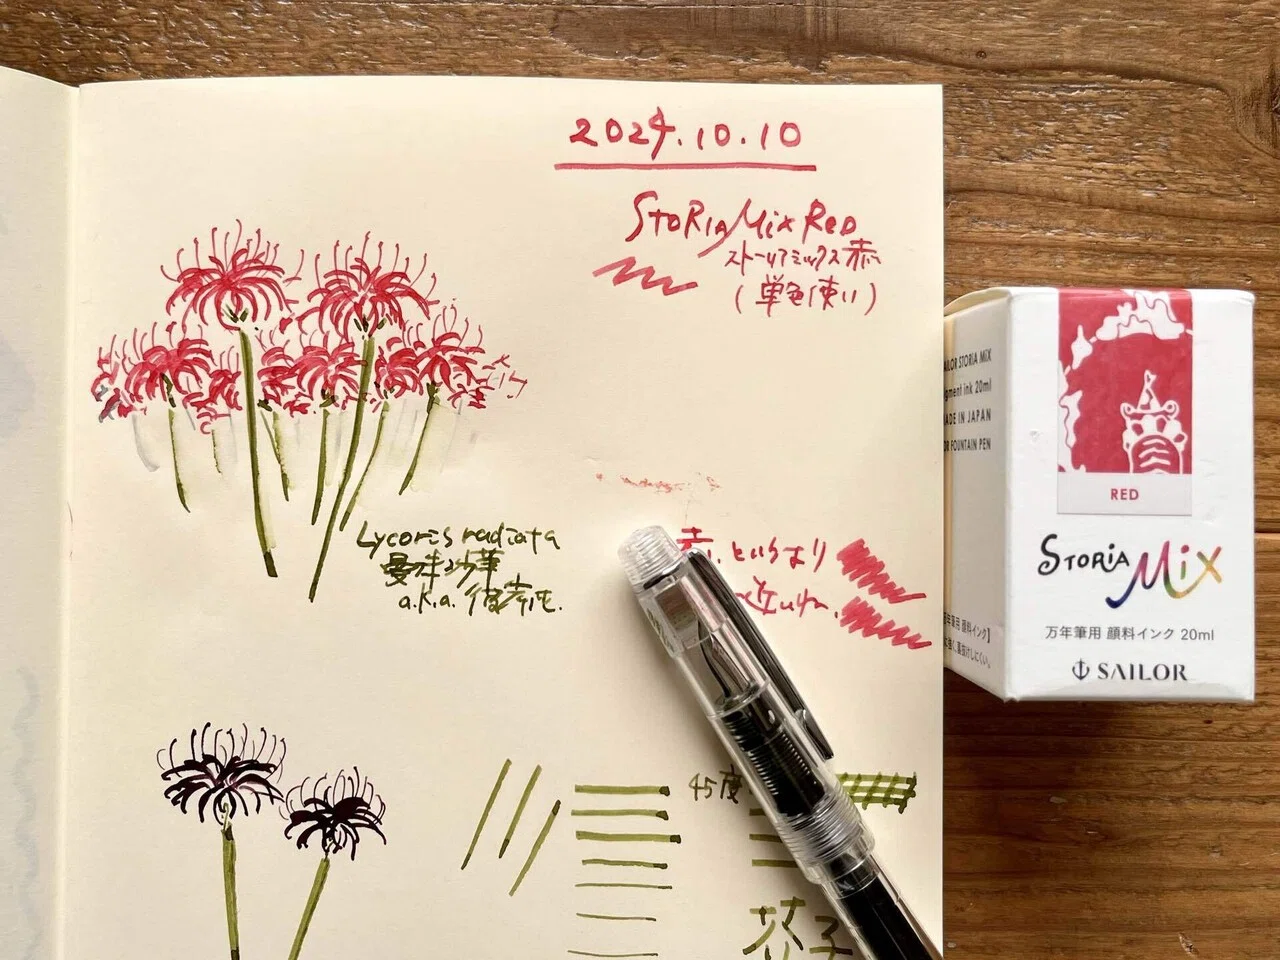 2024.10.10
StoRia Mix Red
ストーリアミックス赤
(単色使い)
Lycoris radiata
曼珠沙華
a.k.a. 彼岸花.
赤、というより
近いね.
45度
SAILOR STORIA MiX
pigment ink 20ml
MADE IN JAPAN
FOR FOUNTAIN PEN
RED
STORIA MiX
万年筆用 顔料インク 20ml
SAILOR